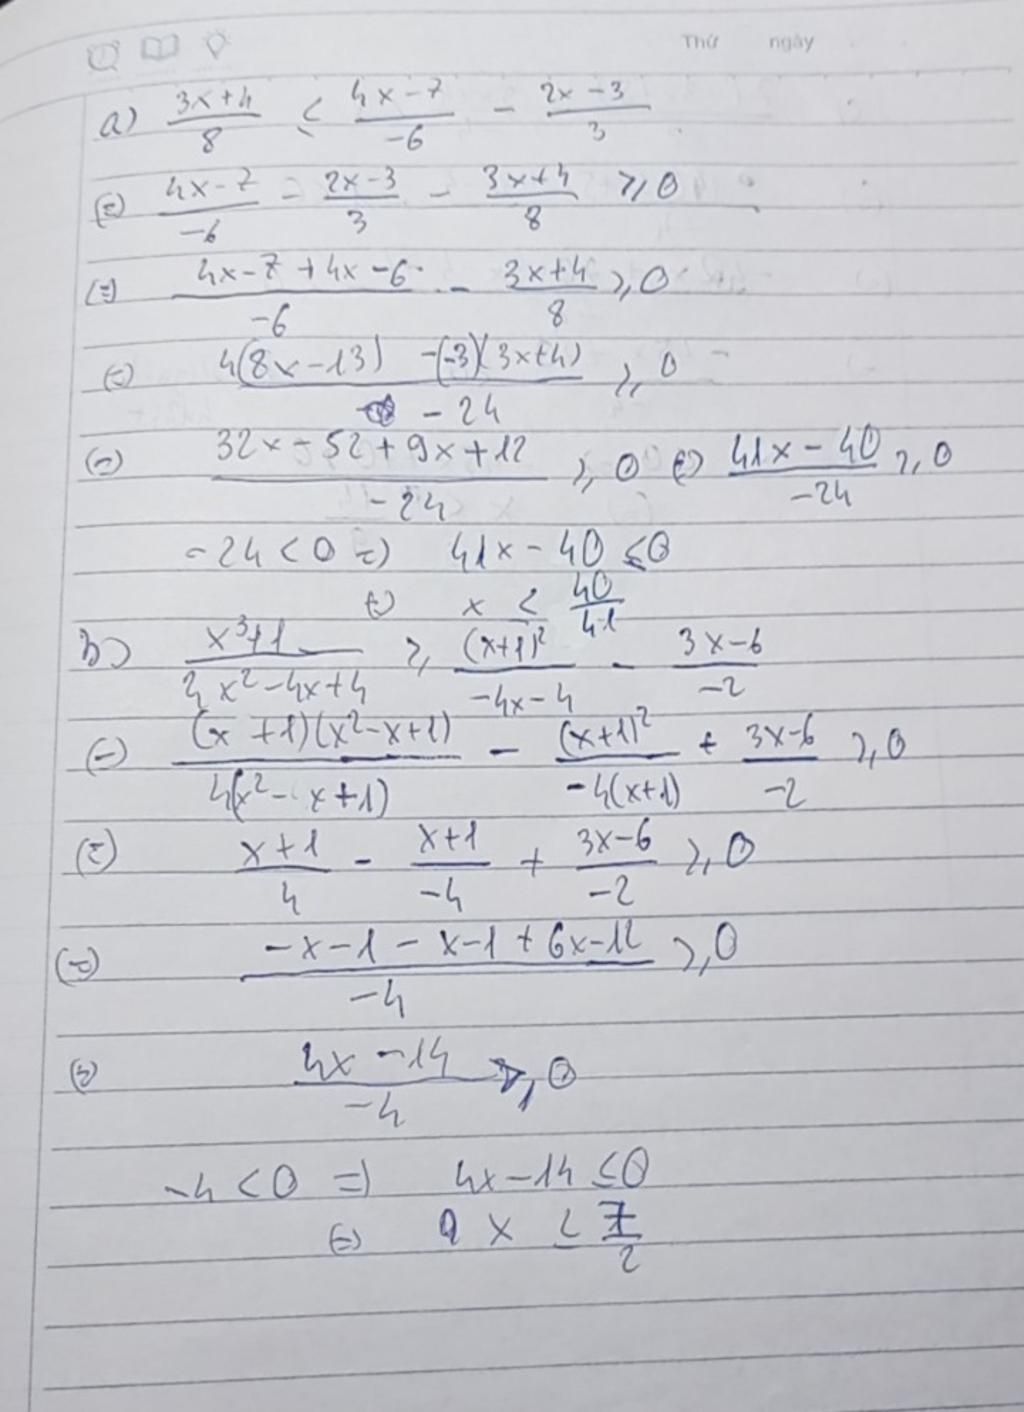 Thứ ngày
a) (3x+4)/8 ≤ (4x-7)/-6 - (2x-3)/3
(=) (4x-7)/-6 - (2x-3)/3 - (3x+4)/8 ≥ 0
(=) (4x-7+4x-6)/-6 - (3x+4)/8 ≥ 0
(=) (4(8x-13) -(-3)(3x+4))/-24 ≥ 0
(=) (32x-52+9x+12)/-24 ≥ 0 (=) (41x-40)/-24 ≥ 0
-24 < 0 =) 41x-40 ≤ 0
(=) x ≤ 40/41
b) (x³+1)/(4x²-4x+4) ≥ (x+1)²/(-4x-4) - (3x-6)/-2
(=) (x+1)(x²-x+1)/4(x²-x+1) - (x+1)²/-4(x+1) + (3x-6)/-2 ≥ 0
(=) (x+1)/4 - (x+1)/-4 + (3x-6)/-2 ≥ 0
(=) (-x-1-x-1+6x-12)/-4 ≥ 0
(=) (4x-14)/-4 ≥ 0
-4 < 0 =) 4x-14 ≤ 0
(=) x ≤ 7/2